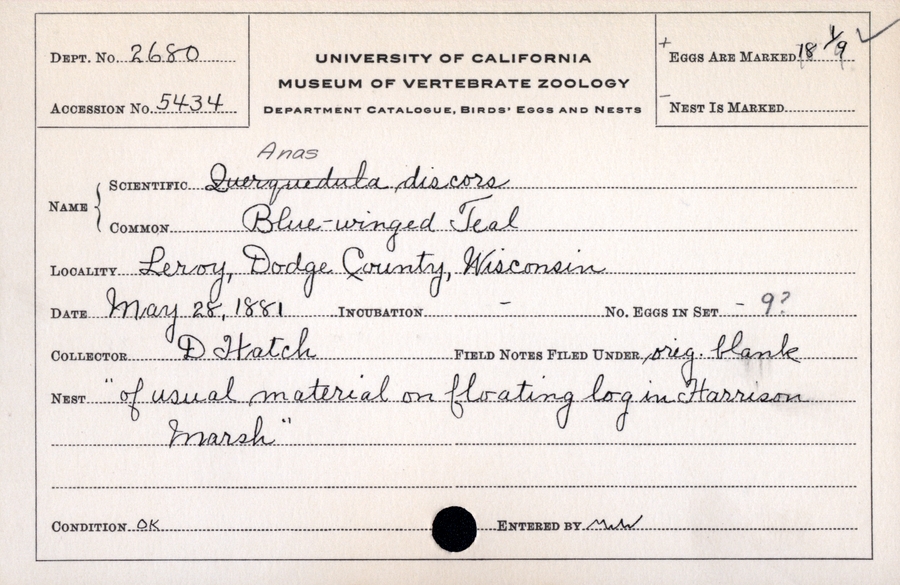 Dept. No. 2680
Accession No. 5434
UNIVERSITY OF CALIFORNIA
MUSEUM OF VERTEBRATE ZOOLOGY
Department Catalogue, Birds' Eggs and Nests
+ Eggs Are Marked 18 1/9 ✓
- Nest Is Marked
Anas
Name { Scientific Querquedula discors
Common Blue-winged Teal
Locality Leroy, Dodge County, Wisconsin
Date May 28, 1881 Incubation - No. Eggs in Set - 9?
Collector D Hatch Field Notes Filed Under orig. blank
Nest "of usual material on floating log in Harrison
Marsh"
Condition OK Entered by